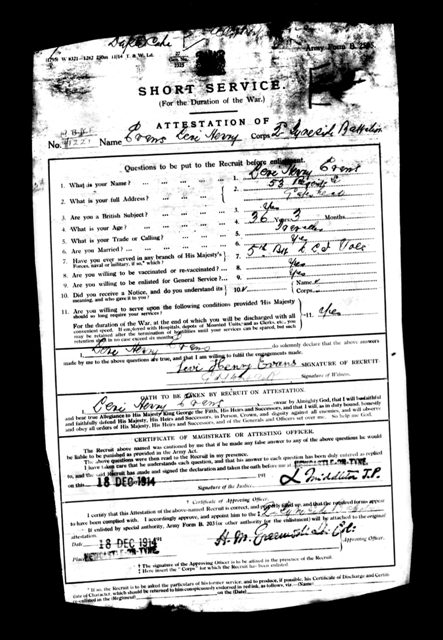 Army Form B.
SHORT SERVICE.
(For the Duration of the War.)
ATTESTATION OF
No. Name Evans Levi Henry Corps Tyneside Battalion
Questions to be put to the Recruit before enlistment.
1. What is your Name? 1. Levi Henry Evans
2. What is your full Address? 2. 53
Gateshead
3. Are you a British Subject? 3. Yes
4. What is your Age? 4. 36 years 3 Months
5. What is your Trade or Calling? 5. Traveller
6. Are you Married? 6. Yes
7. Have you ever served in any branch of His Majesty's
Forces, naval or military, if so, which? 7. 5th
8. Are you willing to be vaccinated or re-vaccinated? 8. Yes
9. Are you willing to be enlisted for General Service? 9. Yes
10. Did you receive a Notice, and do you understand its
meaning, and who gave it to you? 10. Name
Corps
11. Are you willing to serve upon the following conditions provided His Majesty
should so long require your services? 11. Yes
For the duration of the War, at the end of which you will be discharged with all
convenient speed. If employed with Hospitals, depots of Mounted Units, and as Clerks, etc., you
may be retained after the termination of hostilities until your services can be spared, but such
retention shall in no case exceed six months.
I, Levi Henry Evans do solemnly declare that the above answers
made by me to the above questions are true, and that I am willing to fulfil the engagements made.
Levi Henry Evans SIGNATURE OF RECRUIT.
Signature of Witness.
OATH TO BE TAKEN BY RECRUIT ON ATTESTATION.
I, Levi Henry Evans swear by Almighty God, that I will be faithful
and bear true Allegiance to His Majesty King George the Fifth, His Heirs and Successors, and that I will, as in duty bound, honestly
and faithfully defend His Majesty, His Heirs and Successors, in Person, Crown, and dignity against all enemies, and will observe
and obey all orders of His Majesty, His Heirs and Successors, and of the Generals and Officers set over me. So help me God.
CERTIFICATE OF MAGISTRATE OR ATTESTING OFFICER.
The Recruit above named was cautioned by me that if he made any false answer to any of the above questions he would
be liable to be punished as provided in the Army Act.
The above questions were then read to the Recruit in my presence.
I have taken care that he understands each question, and that his answer to each question has been duly entered as replied
to, and the said Recruit has made and signed the declaration and taken the oath before me at NEWCASTLE-ON-TYNE
on this 18 DEC 1914 191
Signature of the Justice L. Middleton J.P.
† Certificate of Approving Officer.
I certify that this Attestation of the above-named Recruit is correct, and properly filled up, and that the required forms appear
to have been complied with. I accordingly approve, and appoint him to the ‡
If enlisted by special authority, Army Form B. 203 (or other authority for the enlistment) will be attached to the original
attestation.
Date 18 DEC 1914 191
Place NEWCASTLE-ON-TYNE
Approving Officer.
† The signature of the Approving Officer is to be affixed in the presence of the Recruit.
‡ Here insert the "Corps" for which the Recruit has been enlisted.
* If so, the Recruit is to be asked the particulars of his former service, and to produce, if possible, his Certificate of Discharge and Certifi-
cate of Character, which should be returned to him conspicuously endorsed in red ink, as follows, viz.